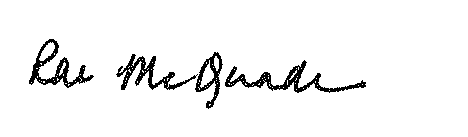 Rae McQuade